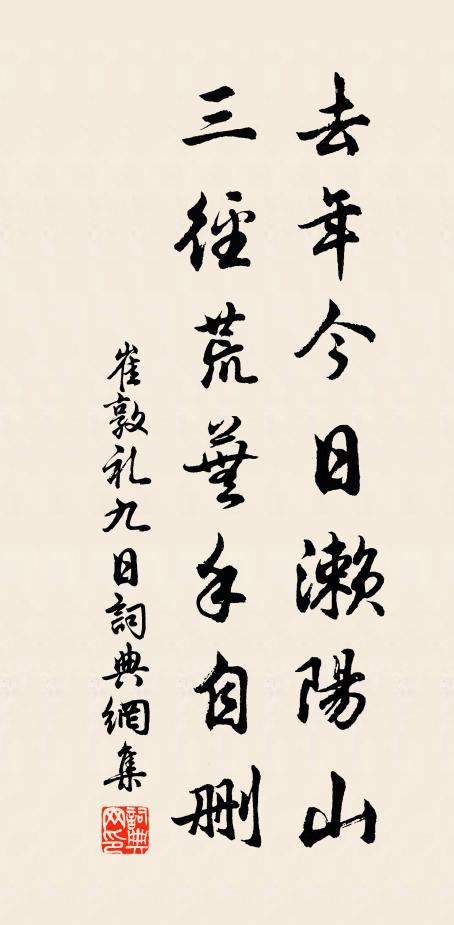 去年今日濑陽山
三徑荒蕪手自删
崔敦礼九日詞典網集
詞典網印